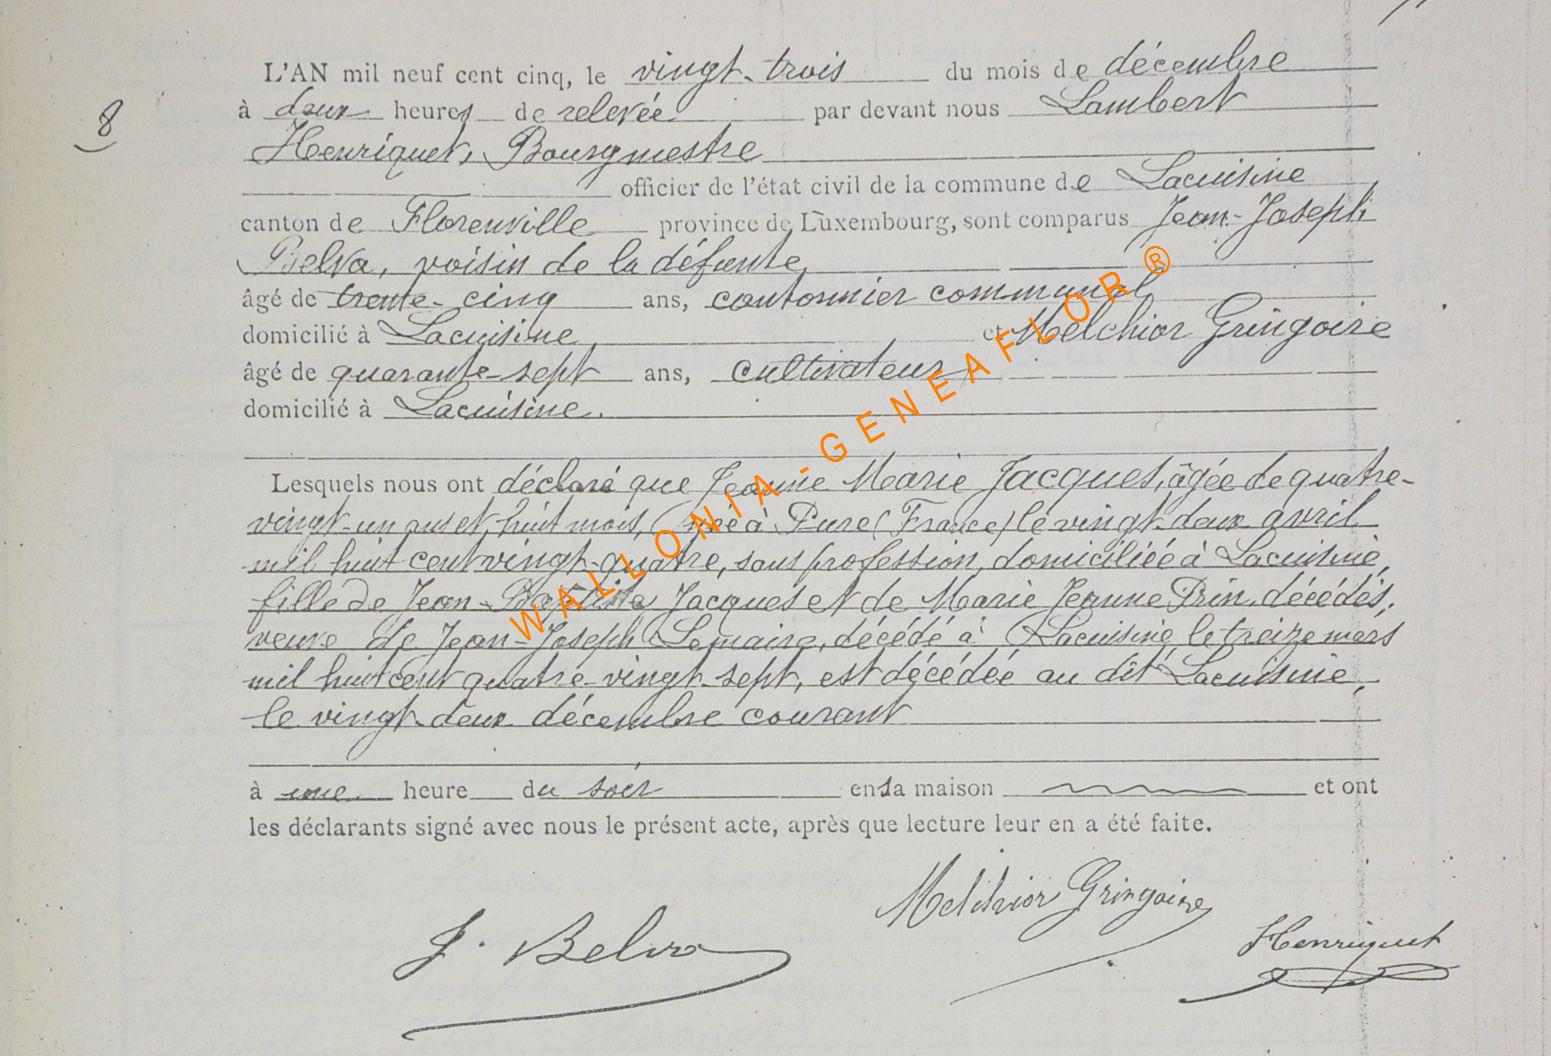 L'AN mil neuf cent cinq, le vingt-trois du mois de décembre
8
à deux heures de relevée par devant nous Lambert
Henriquet, Bourgmestre
officier de l'état civil de la commune de Lacuisine
canton de Florenville province de Luxembourg, sont comparus Jean-Joseph
Belva, voisin de la défunte,
âgé de trente-cinq ans, cantonnier communal
domicilié à Lacuisine, et Melchior Gringoire
âgé de quarante-sept ans, cultivateur
domicilié à Lacuisine.
Lesquels nous ont déclaré que Jeanne Marie Jacques, âgée de quatre-
vingt-un ans et huit mois, née à Pure (France) le vingt-deux avril
mil huit cent vingt-quatre, sans profession, domiciliée à Lacuisine,
fille de Jean-Baptiste Jacques et de Marie Jeanne Prin, décédés,
veuve de Jean-Joseph Lemaire, décédé à Lacuisine, le treize mars
mil huit cent quatre-vingt-sept, est décédée au dit Lacuisine,
le vingt-deux décembre courant
à une heure du soir en sa maison et ont
les déclarants signé avec nous le présent acte, après que lecture leur en a été faite.
Melchior Gringoire
J. Belva
Henriquet
WALLONIA-GENEAFLOR ®